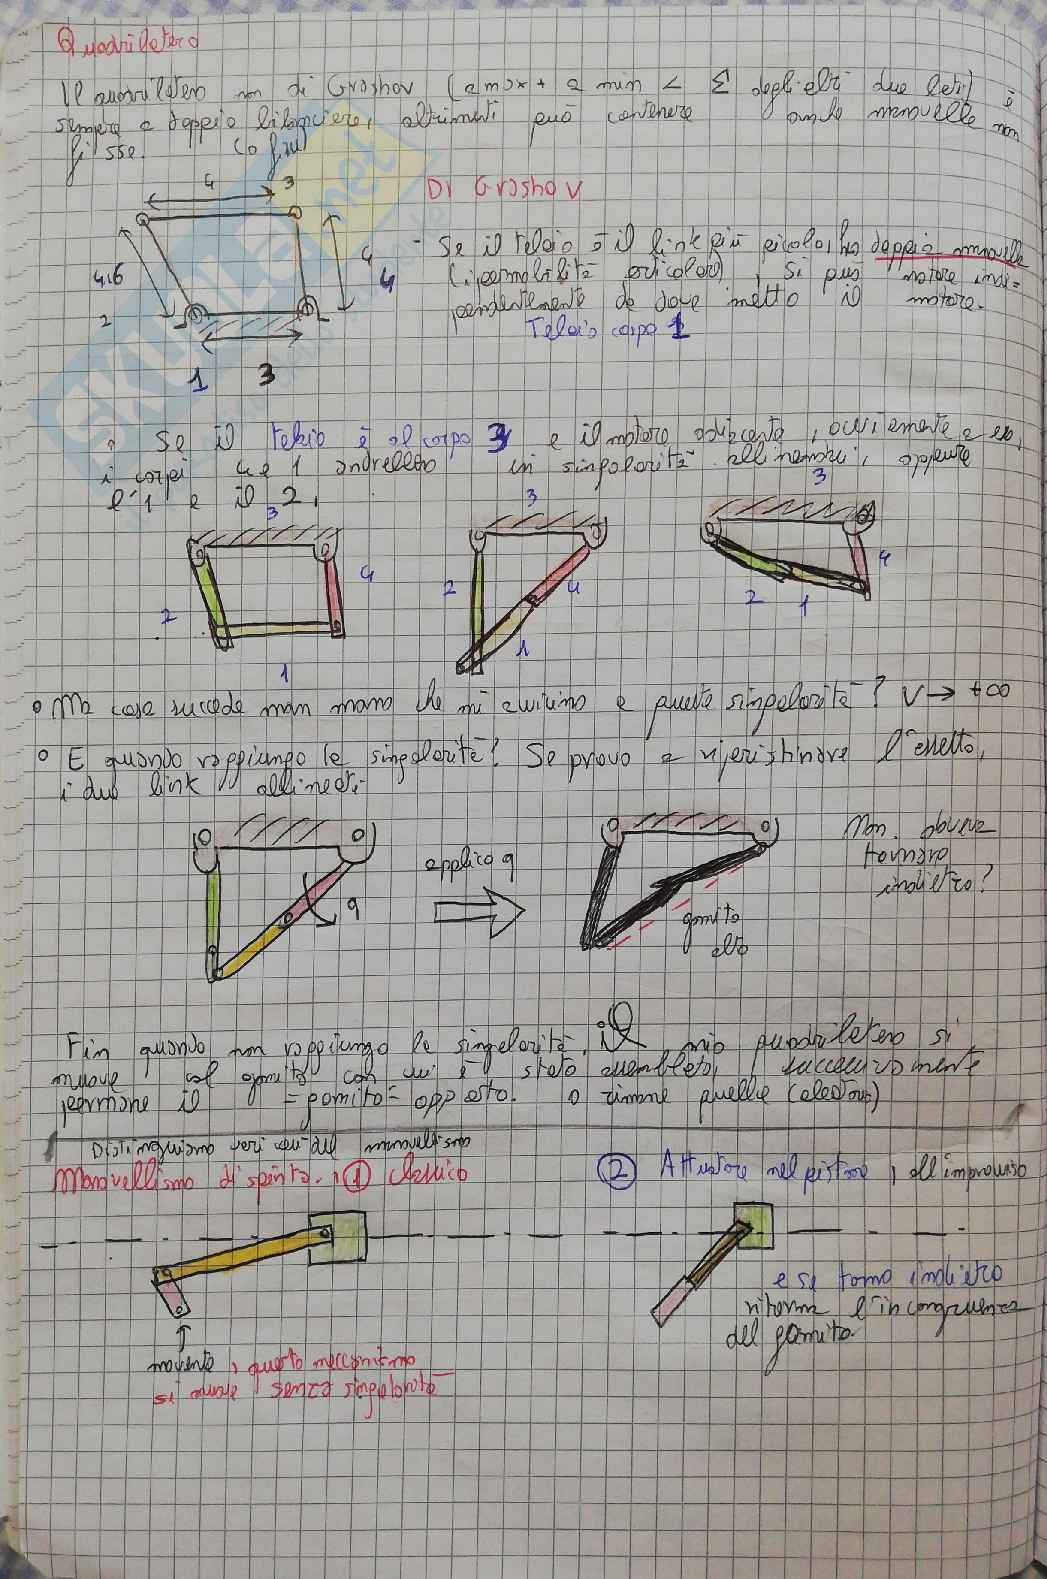 Quadrilatero
Il quadrilatero non di Grashov (a max + a min < Σ degli altri due lati) è
sempre a doppio bilanciere, altrimenti può contenere anche manovelle non
fisse.
4
3
Di Grashov
- Se il telaio è il link più piccolo, ho doppia manovella
4.6
4
4
, si può motore indi=
2
pendentemente da dove metto il motore.
Telaio corpo 1
1
3
Se il telaio è al corpo 3 e il motore adiacente, ovviamente a es,
i corpi 4 e 1 andrebbero in singolarità allineandosi, oppure
l'1 e il 2.
3
3
3
2
4
2
4
4
1
2
1
1
Ma cosa succede man mano che mi avvicino a questa singolarità? V → +∞
E quando raggiungo la singolarità? Se provo a ripristinare l'assetto,
i due link allineati:
applico q
q
Non doveva
tornare
indietro?
gomito
alto
Fin quando non raggiungo la singolarità, il mio quadrilatero si
muove col gomito con cui è stato assemblato, successivamente
permane il =gomito= opposto. o rimane quello (aleatorio)
Distinguiamo vari casi del manovellismo
Manovellismo di spinta. 1 Classico
2 Attuatore nel pistone, all'improvviso
e se torno indietro
ritorna l'incongruenza
del gomito
movente, questo meccanismo
si muove senza singolarità
SKUOLA.net